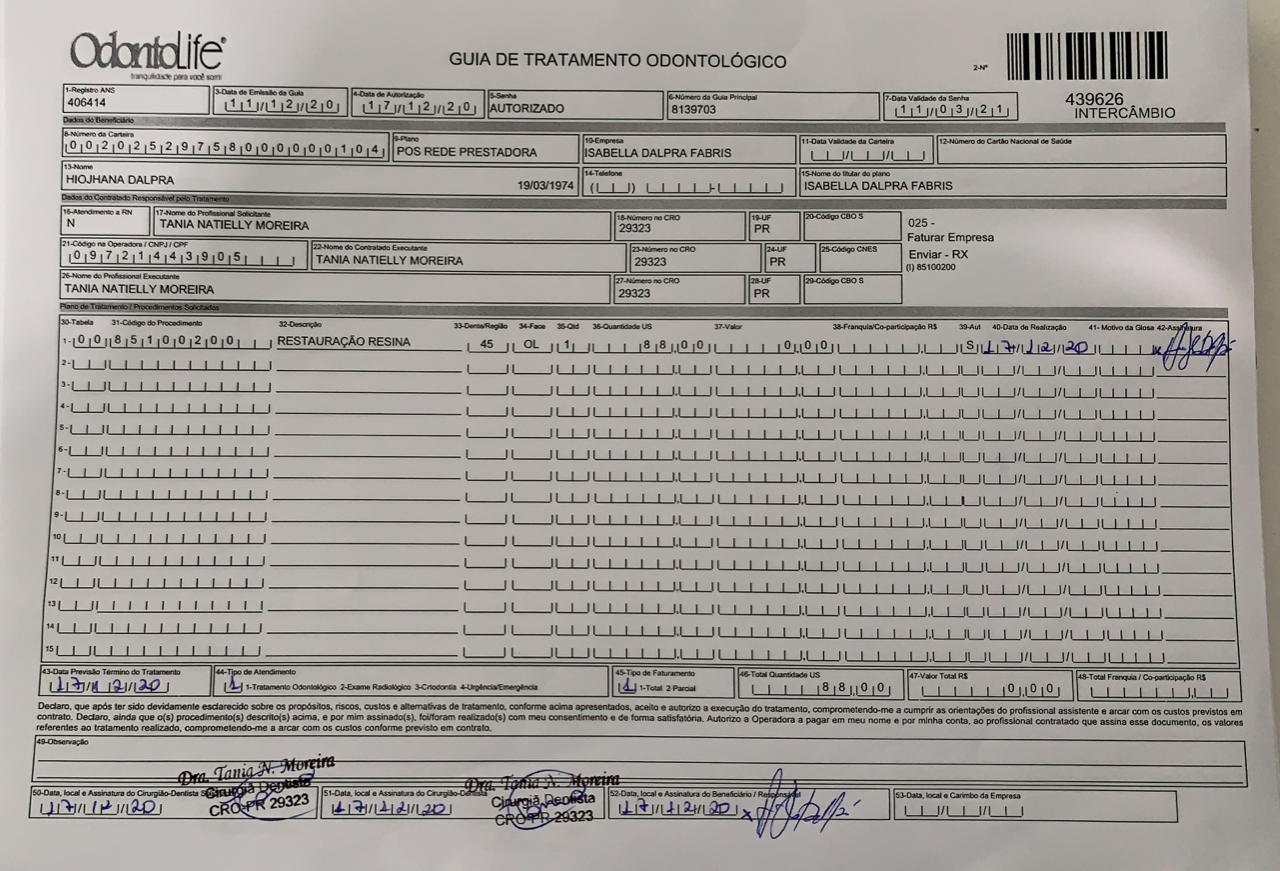 OdontoLife®
tranquilidade para você sorrir
GUIA DE TRATAMENTO ODONTOLÓGICO
2-Nº
439626
INTERCÂMBIO
1-Registro ANS
406414
3-Data de Emissão da Guia
11/12/20
4-Data de Autorização
17/12/20
5-Senha
AUTORIZADO
6-Número da Guia Principal
8139703
7-Data Validade da Senha
11/03/21
Dados do Beneficiário
8-Número da Carteira
00202529758000000104
9-Plano
POS REDE PRESTADORA
10-Empresa
ISABELLA DALPRA FABRIS
11-Data Validade da Carteira
12-Número do Cartão Nacional de Saúde
13-Nome
HIOJHANA DALPRA 19/03/1974
14-Telefone
15-Nome do titular do plano
ISABELLA DALPRA FABRIS
Dados do Contratado Responsável pelo Tratamento
16-Atendimento a RN
N
17-Nome do Profissional Solicitante
TANIA NATIELLY MOREIRA
18-Número no CRO
29323
19-UF
PR
20-Código CBO S
025 -
Faturar Empresa
Enviar - RX
(I) 85100200
21-Código na Operadora / CNPJ / CPF
09721443905
22-Nome do Contratado Executante
TANIA NATIELLY MOREIRA
23-Número no CRO
29323
24-UF
PR
25-Código CNES
26-Nome do Profissional Executante
TANIA NATIELLY MOREIRA
27-Número no CRO
29323
28-UF
PR
29-Código CBO S
Plano de Tratamento / Procedimentos Solicitados
30-Tabela 31-Código do Procedimento 32-Descrição 33-Dente/Região 34-Face 35-Qtd 36-Quantidade US 37-Valor 38-Franquia/Co-participação R$ 39-Aut 40-Data de Realização 41- Motivo da Glosa 42-Assinatura
1- 00 85100200 RESTAURAÇÃO RESINA 45 OL 1 88,00 0,00 S 17/12/20
2-
3-
4-
5-
6-
7-
8-
9-
10
11
12
13
14
15
43-Data Previsão Término do Tratamento
17/12/20
44-Tipo de Atendimento
1 1-Tratamento Odontológico 2-Exame Radiológico 3-Ortodontia 4-Urgência/Emergência
45-Tipo de Faturamento
1 1-Total 2 Parcial
46-Total Quantidade US
88,00
47-Valor Total R$
0,00
48-Total Franquia / Co-participação R$
Declaro, que após ter sido devidamente esclarecido sobre os propósitos, riscos, custos e alternativas de tratamento, conforme acima apresentados, aceito e autorizo a execução do tratamento, comprometendo-me a cumprir as orientações do profissional assistente e arcar com os custos previstos em
contrato. Declaro, ainda que o(s) procedimento(s) descrito(s) acima, e por mim assinado(s), foi/foram realizado(s) com meu consentimento e de forma satisfatória. Autorizo a Operadora a pagar em meu nome e por minha conta, ao profissional contratado que assina esse documento, os valores
referentes ao tratamento realizado, comprometendo-me a arcar com os custos conforme previsto em contrato.
49-Observação
Dra. Tania N. Moreira
Cirurgiã Dentista
CRO-PR 29323
Dra. Tania N. Moreira
Cirurgiã Dentista
CRO-PR 29323
50-Data, local e Assinatura do Cirurgião-Dentista
17/12/20
51-Data, local e Assinatura do Cirurgião-Dentista
17/12/20
52-Data, local e Assinatura do Beneficiário / Responsável
17/12/20
53-Data, local e Carimbo da Empresa